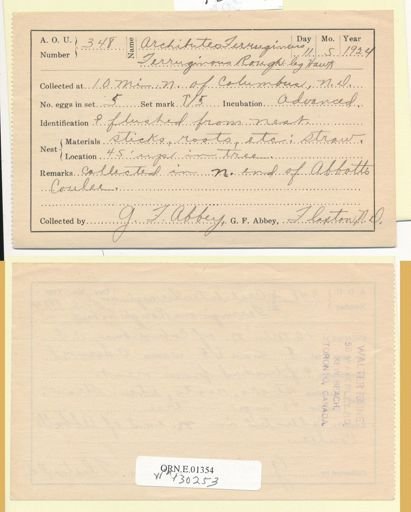 A. O. U. Number 348 Name Archibuteo Ferrugineus Day Mo. Year
Ferruginous Rough leg Hawk 11 5 1924
Collected at 10 mi. N. of Columbus, N.D.
No. eggs in set 5 Set mark 7/5 Incubation Advanced
Identification ♀ flushed from nest
Nest Materials sticks, roots, etc; straw.
Location 45' up in tree.
Remarks Collected in n. end of Abbotts
Coulee.
Collected by G F Abbey, G. F. Abbey, Flaxton, N.D.
TORONTO, CANADA
ORN.E.01354
130253